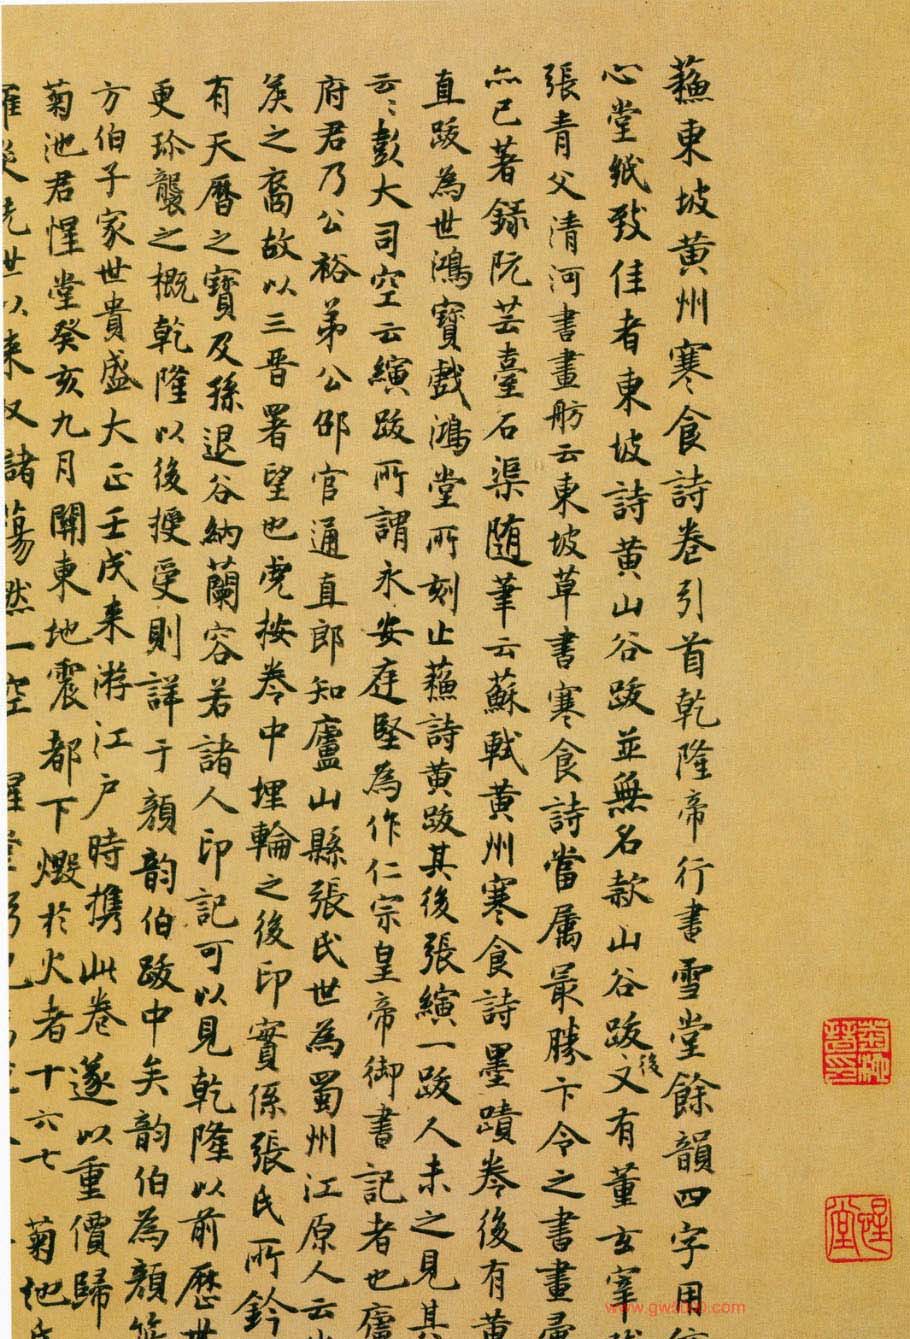 蘓東坡黃州寒食詩卷引首乾隆帝行書雪堂餘韻四字用
心堂紙致佳者東坡詩黃山谷跋並無名款山谷跋後又有董玄宰
張青父清河書畫舫云東坡草書寒食詩當属最勝卞令之書畫
亦已著録阮芸臺石渠随筆云蘇軾黃州寒食詩墨蹟卷後有黃
直跋為世鴻寶戲鴻堂所刻止蘓詩黃跋其後張縯一跋人未之見其
云云彭大司空云縯跋所謂永安庭堅為作仁宗皇帝御書記者也廬
府君乃公裕弟公邵官通直郎知廬山縣張氏世為蜀州江原人云
矦之裔故以三晋署望也虎按卷中埋輪之後印實係張氏所鈐
有天曆之寶及孫退谷納蘭容若諸人印記可以見乾隆以前歷世
更珎襲之概乾隆以後授受則詳于顏韵伯跋中矣韵伯為顏
方伯子家世貴盛大正壬戌来游江户時携此卷遂以重價歸
菊池君惺堂癸亥九月關東地震都下燬於火者十六七菊池氏
先世以来収諸蕩然一空惺堂
菊池晉印
惺堂